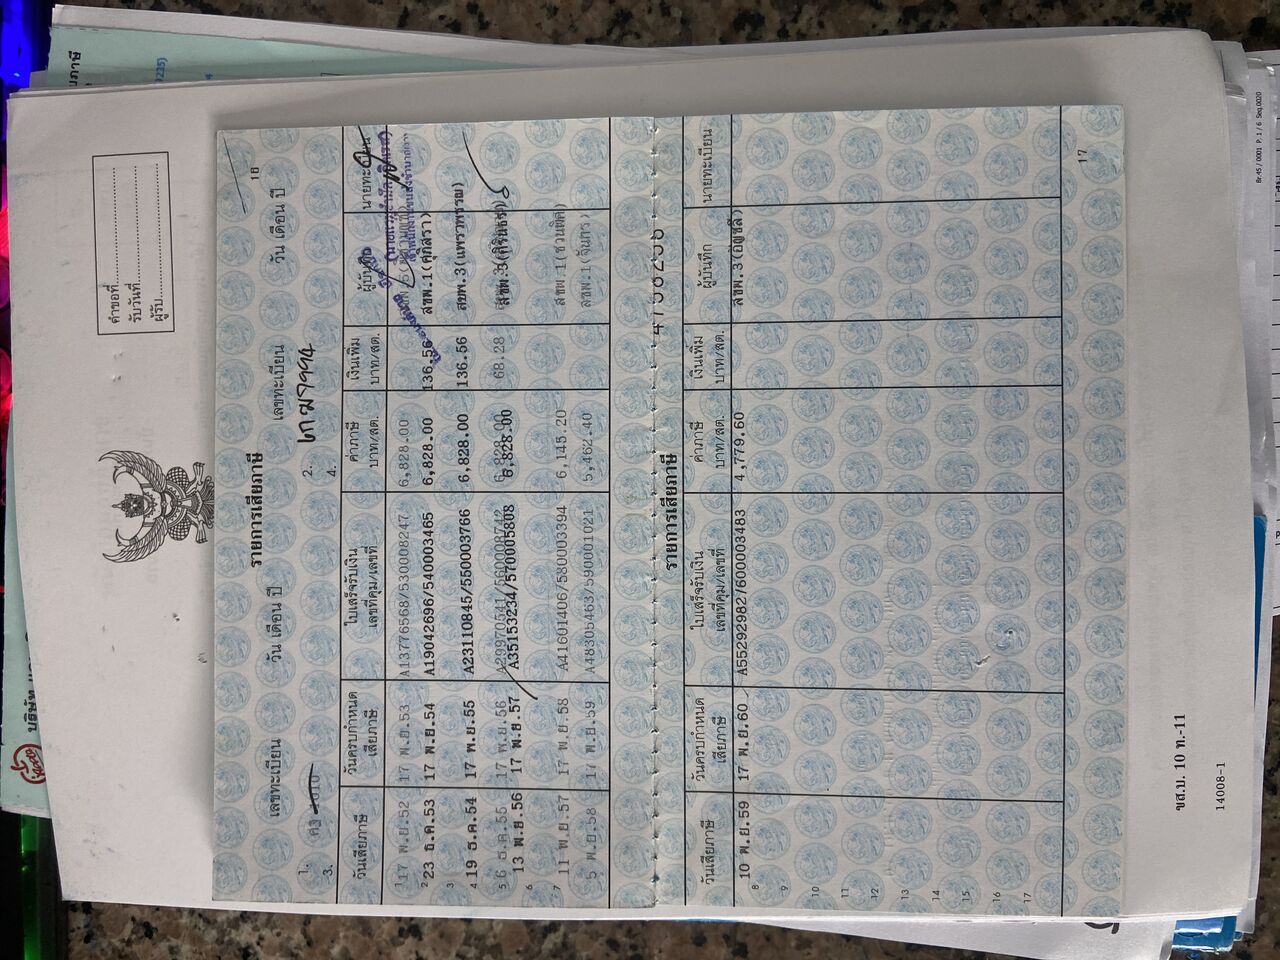 คำขอที่
รับวันที่
ผู้รับ
16
รายการเสียภาษี
เลขทะเบียน วัน เดือน ปี เลขทะเบียน วัน เดือน ปี
1. 2.
3. 4.
วันเสียภาษี วันครบกำหนดเสียภาษี ใบเสร็จรับเงิน เลขที่คุม/เลขที่ ค่าภาษี บาท/สต. เงินเพิ่ม บาท/สต. ผู้บันทึก นายทะเบียน
1 17 พ.ย.52 17 พ.ย.53 A13776568/530008247 6,828.00
2 23 ธ.ค.53 17 พ.ย.54 A19042696/540003465 6,828.00 136.56 สขพ.1(ศุภิสรา)
3
4 19 ธ.ค.54 17 พ.ย.55 A23110845/550003766 6,828.00 136.56 สขพ.3(แพรวพรรษ)
5 6 ธ.ค.55 17 พ.ย.56 A29970541/560008742 6,828.00 68.28
6 13 พ.ย.56 17 พ.ย.57 A35153234/570005808 6,828.00
7 11 พ.ย.57 17 พ.ย.58 A41601406/580003394 6,145.20 สขพ.1(ชวนพิศ)
5 พ.ย.58 17 พ.ย.59 A48305463/590001021 5,462.40 สขพ.1(จินกร)
รายการเสียภาษี
วันเสียภาษี วันครบกำหนดเสียภาษี ใบเสร็จรับเงิน เลขที่คุม/เลขที่ ค่าภาษี บาท/สต. เงินเพิ่ม บาท/สต. ผู้บันทึก นายทะเบียน
10 พ.ย.59 17 พ.ย.60 A55292982/600003483 4,779.60 สขพ.3(อัญชลี)
8
9
10
11
12
13
14
15
16
17
17
ขส.บ. 10 ท.-11
14008-1
Br.45 / 0001 P. 1 / 6 Seq.0020